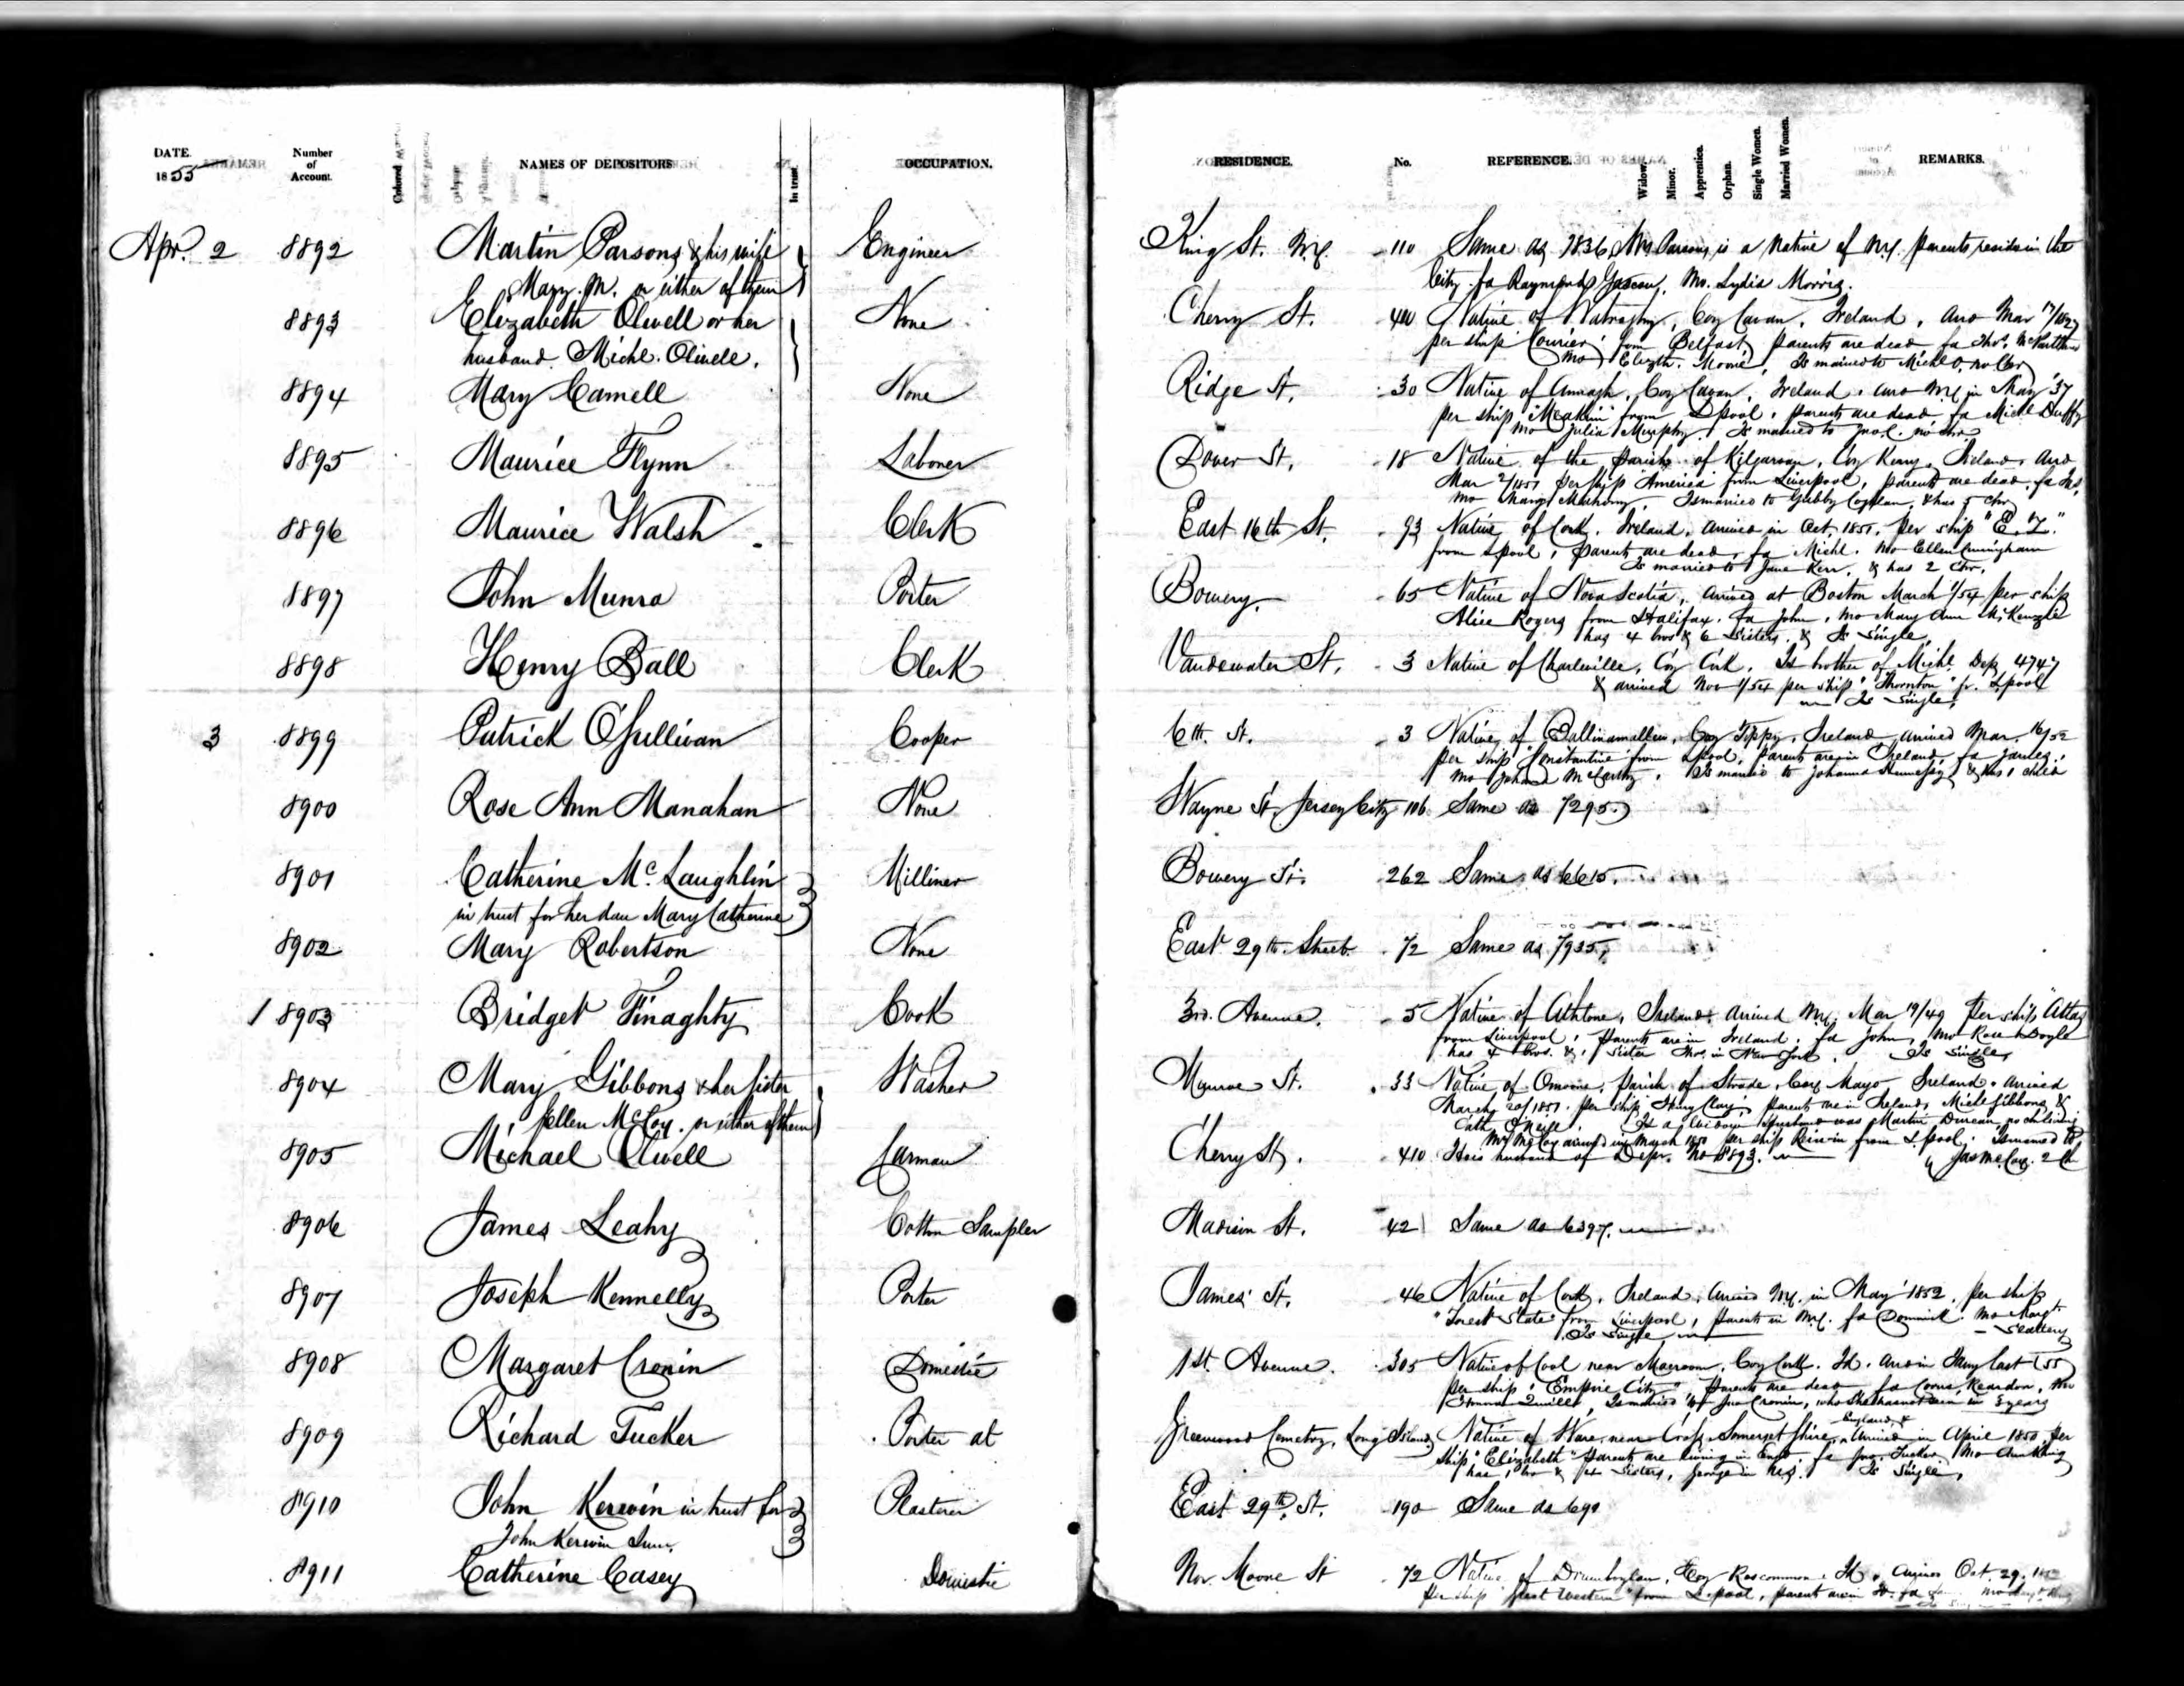 DATE.
1855
Number
of
Account.
NAMES OF DEPOSITORS
In trust
OCCUPATION.
RESIDENCE.
No.
REFERENCE.
Widow.
Minor.
Apprentice.
Orphan.
Single Women.
Married Women.
REMARKS.
Apr. 2 8892 Martin Parsons & his wife Engineer King St. N.Y. 110 Same as 7836 Mrs Parsons is a Native of N.Y. parents reside in the
Mary. M. or either of them City. fa Raymond Mo. Lydia Morris.
8893 Elizabeth Olwell or her None Cherry St. 410 Native of Coy Cavan, Ireland, Arro Mar 17/1827
husband Michl. Olwell. per ship Courier from Belfast, parents are dead fa Thos.
Mo Elizth. Moore, Is married to Michl O, no Chn
8894 Mary Camell None Ridge St. 30 Native of Annagh, Coy Cavan, Ireland, Arro N.Y. in May '37
per ship from Lpool, parents are dead fa Michl Duffy
mo Julia Murphy. Is married to Jno C. no chn
8895 Maurice Flynn Laborer Dover St. 18 Native of the Parish of Kilgarvan, Coy Kerry, Ireland, Arro
Mar 2/1851 per ship America from Liverpool, parents are dead, fa
mo Margt Mahony, Is married to Coghlan, & has 5 chn
8896 Maurice Walsh Clerk East 16th St. 93 Native of Cork, Ireland, arrived in Oct. 1851, Per ship "E. Z."
from Lpool, parents are dead, fa Michl. Mo Ellen Cuningham
Is married to Jane Kerr, & has 2 chn.
8897 John Munro Porter Bowery. 65 Native of Nova Scotia, arrived at Boston March 1/54 per ship
Alice Rogers from Halifax. fa John, Mo Mary Ann McKenzie
has 4 bros & 6 Sisters, & Is Single,
8898 Henry Ball Clerk Vandewater St. 3 Native of Charleville, Coy Cork. Is brother of Michl Dep 4747
& arrived Nov 1/54 per ship "Thornton" fr. Lpool
Is Single,
3 8899 Patrick O'Sullivan Cooper 6th. St. 3 Native of Coy Tippy, Ireland, arrived Mar. 16/52
per ship Constantine from Lpool, Parents are in Ireland, fa James,
mo Johana McCarthy. Is married to Johanna Hennessy & has 1 child
8900 Rose Ann Manahan None Wayne St. Jersey City 106 Same as 7295.
8901 Catherine Mc. Laughlin Milliner Bowery St. 262 Same as 6615.
in trust for her dau Mary Catherine
8902 Mary Robertson None East 29th. Street. 72 Same as 7935,
1 8903 Bridget Finaghty Cook 3rd. Avenue. 5 Native of Athlone, Ireland, Arrived N.Y. Mar 19/49 Per ship
from Liverpool, Parents are in Ireland, fa John, Mo Rose Doyle
has 4 Bros. & 1 Sister Thos. in New York. Is Single,
8904 Mary Gibbons & her sister Washer Munroe St. 33 Native of Parish of Strade, Coy Mayo, Ireland, arrived
Ellen McCoy. or either of them March 20/1851. per ship Henry Clay, parents are in Ireland, Michl Gibbons &
Cath O'Neill. Is a Widow Husband was Martin Duncan, no children
Mrs McCoy arrived in March 1850 per ship from L.pool. Is married to
8905 Michael Olwell Carman Cherry St. 410 He is husband of Depr. No 8893. Jas McCoy. 2 Ch
8906 James Leahy Cotton Sampler Madison St. 42 Same as 6397.
8907 Joseph Kennelly Porter James' St. 46 Native of Cork, Ireland, Arrived N.Y. in May 1852, per ship
"Forest State" from Liverpool, parents in N.Y. fa Dominick. Mo Margt.
Is Single Slattery
8908 Margaret Cronin Domestic 1st. Avenue. 305 Native of Cool near Macroom, Coy Cork. Id. Arro in Jany last 55
per ship "Empire City" Parents are dead fa Corns. Reardon, Mo
Is married to Jno Cronin, who she has not seen in 3 years
8909 Richard Tucker Porter at Greenwood Cemetry, Long Island, Native of Ware, near Somerset Shire, England, & Arrived in April 1850, Per
Ship "Elizabeth" Parents are living in Engd. fa Jno. Tucker. Mo Ann King
has 1 bro & Sisters, George in U.S. Is Single,
8910 John Kerwin in trust for Plasterer East 29th. St. 190 Same as 690
John Kerwin Junr.
8911 Catherine Casey Domestic Nor. Moore St 72 Native of Coy Roscommon, Id, Arrived Oct. 29.
Per ship Great Western from L.pool, parents are in Id. fa